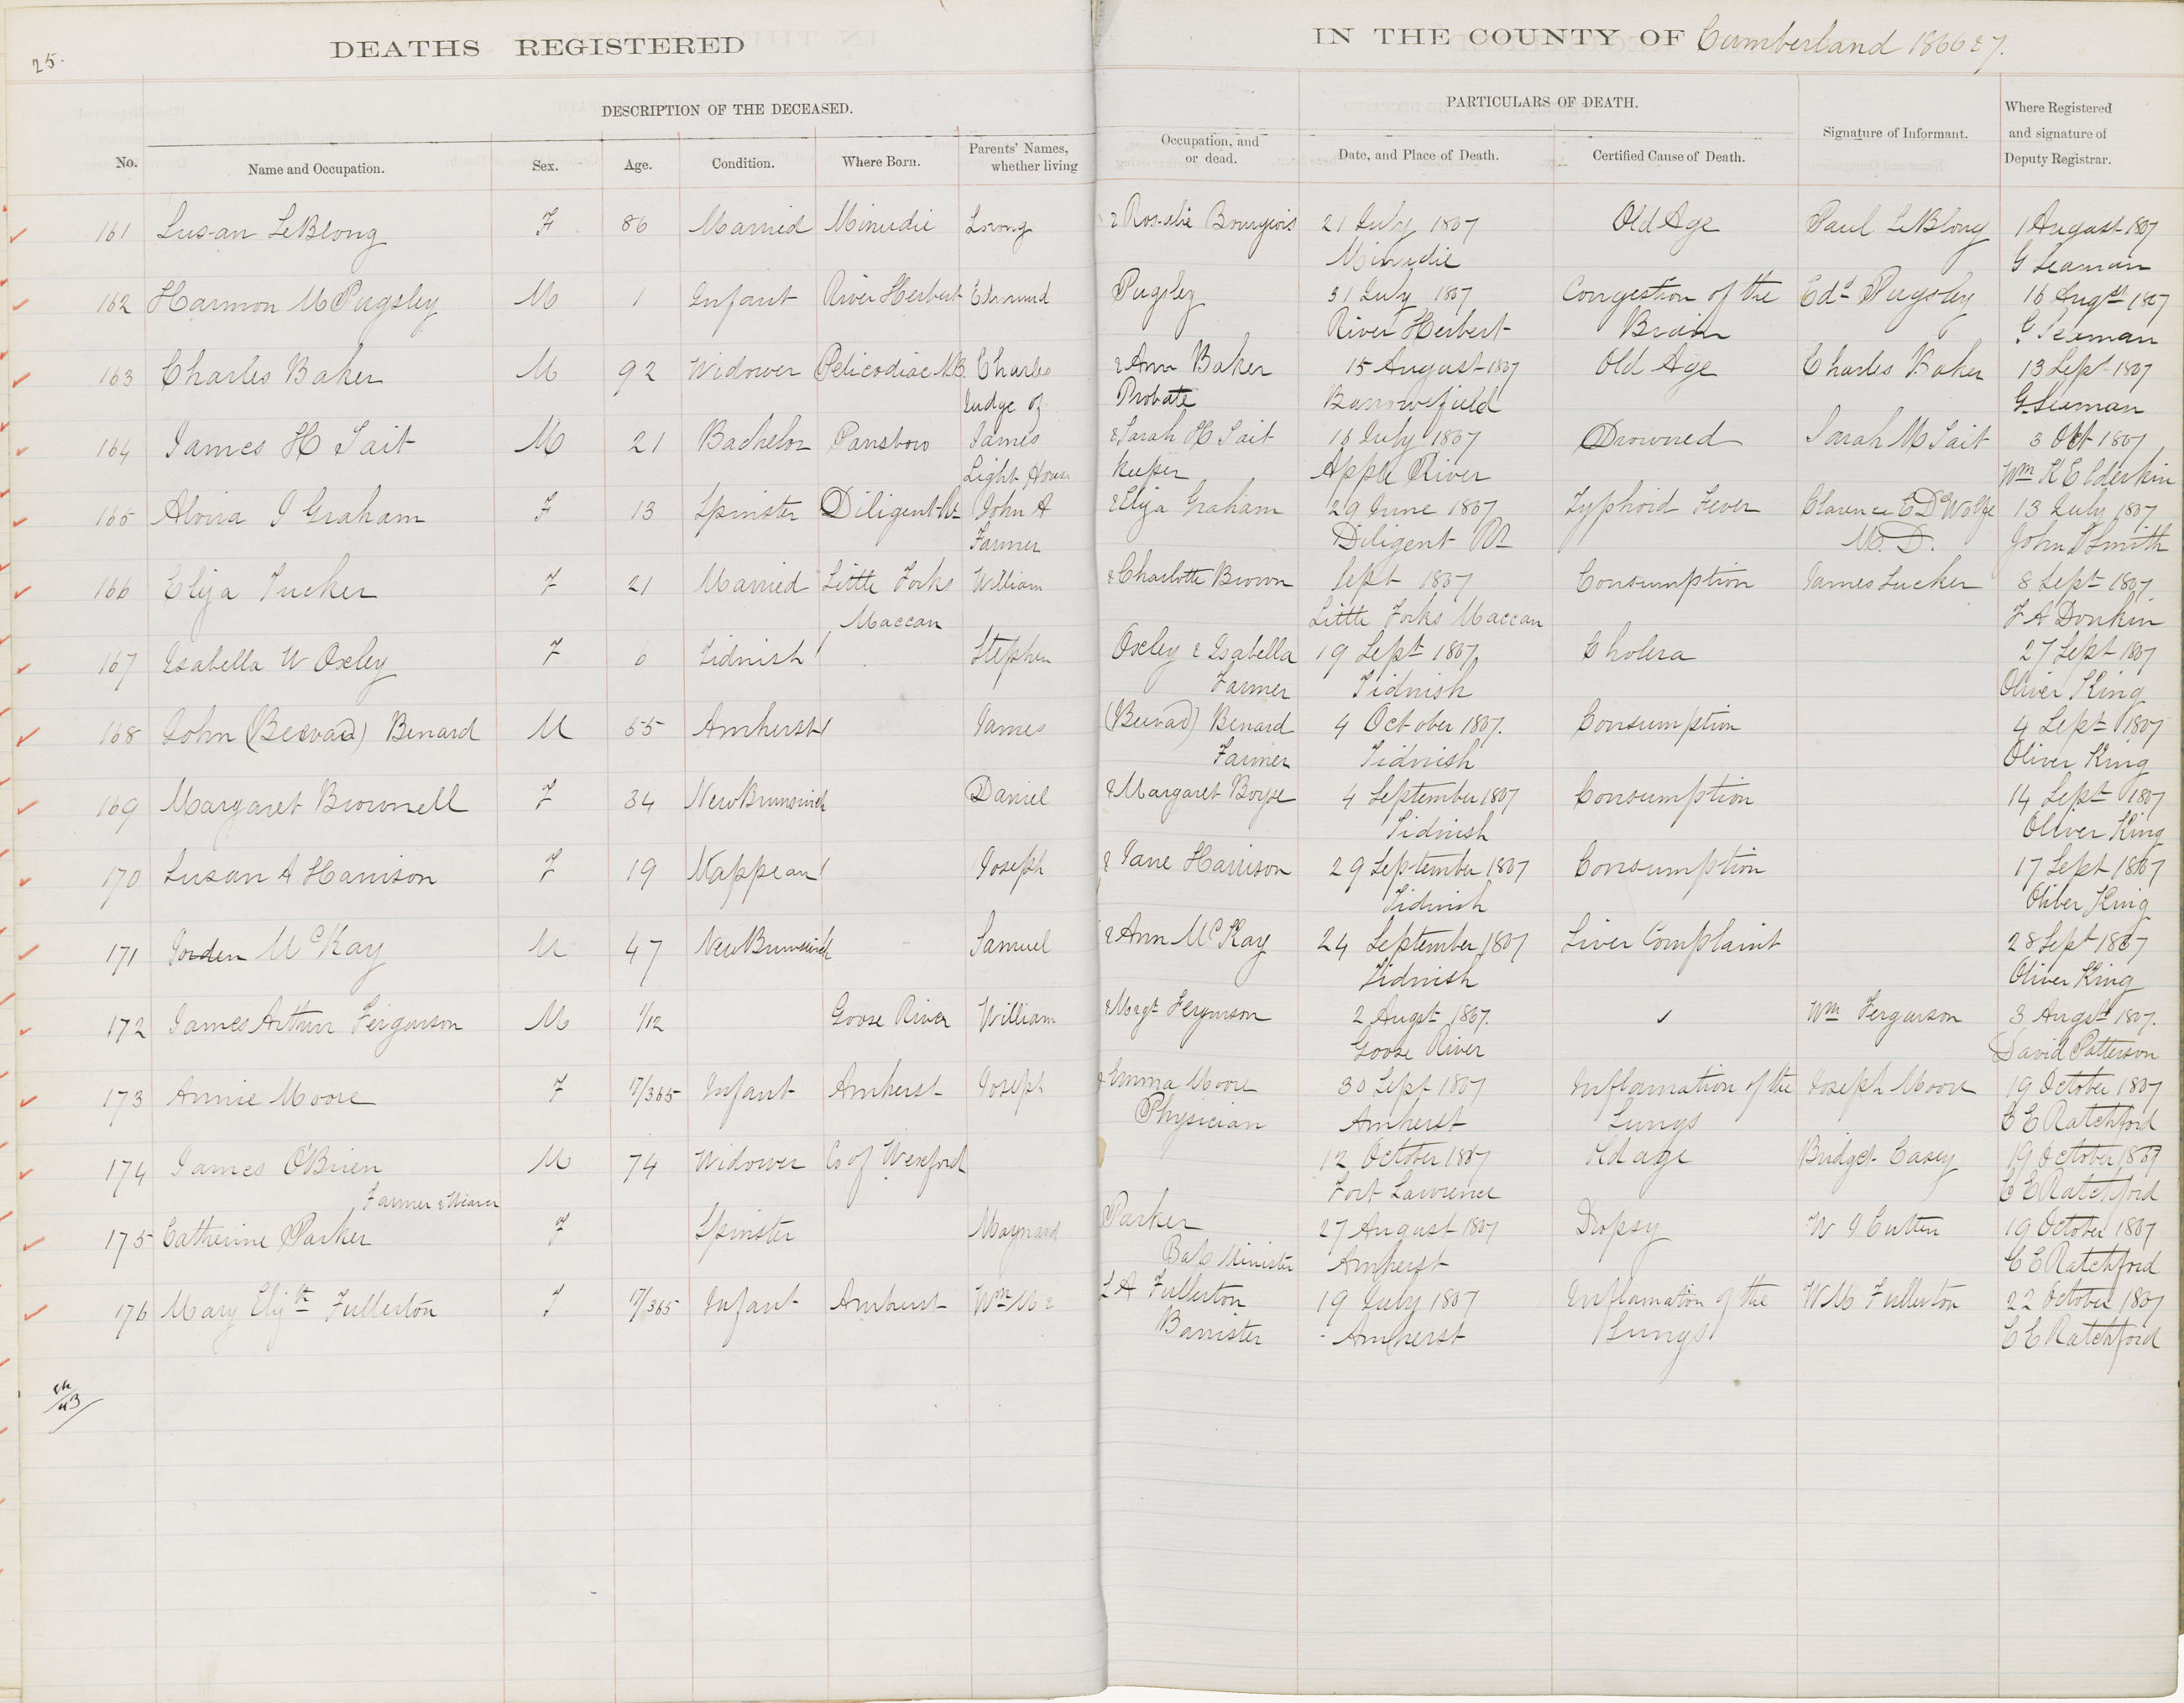 25.
DEATHS REGISTERED IN THE COUNTY OF Cumberland 1866 & 7.
DESCRIPTION OF THE DECEASED. PARTICULARS OF DEATH.
No. Name and Occupation. Sex. Age. Condition. Where Born. Parents' Names, whether living Occupation, and or dead. Date, and Place of Death. Certified Cause of Death. Signature of Informant. Where Registered and signature of Deputy Registrar.
161 Susan LeBlong F 86 Married Minudie & Rosalie Bourgeois 21 July 1867 Old Age Paul LeBlong 1 August 1867
Minudie G Seaman
162 Harmon M Pugsley M 1 Infant River Herbert Edmund Pugsley 31 July 1867 Congestion of the Edd Pugsley 16 Augst 1867
River Herbert Brain G Seaman
163 Charles Baker M 92 Widower Peticodiac N.B. Charles & Ann Baker 15 August 1867 Old Age Charles Baker 13 Sept 1867
Judge of Probate Barronsfield G. Seaman
164 James H Tait M 21 Bachelor Parrsboro James & Sarah H Tait 16 July 1867 Drowned Sarah M Tait 3 Oct 1867
Light House Keeper Apple River Wm K Elderkin
165 Alvira J Graham F 13 Spinster Diligent Rr John A & Eliza Graham 29 June 1867 Typhoid Fever Clarence E DeWolfe 13 July 1867
Farmer Diligent Rr M.D. John S Smith
166 Eliza Tucker F 21 Married Little Forks William & Charlotte Brown Sept 1867 Consumption James Tucker 8 Sept 1867
Maccan Little Forks Maccan F A Donkin
167 Isabella W Oxley F 6 Tidnish Stephen Oxley & Isabella 19 Sept 1867 Cholera 27 Sept 1867
Farmer Tidnish Oliver King
168 John (Beevad) Benard M 55 Amherst James (Beevad) Benard 4 October 1867. Consumption 4 Sept 1867
Farmer Tidnish Oliver King
169 Margaret Brownell F 34 New Brunswick Daniel & Margaret 4 September 1867 Consumption 14 Sept 1867
Tidnish Oliver King
170 Susan A Harrison F 19 Nappean Joseph & Jane Harrison 29 September 1867 Consumption 17 Sept 1867
Tidnish Oliver King
171 Jorden McKay M 47 New Brunswick Samuel & Ann McKay 24 September 1867 Liver Complaint 28 Sept 1867
Tidnish Oliver King
172 James Arthur Ferguson M 1/12 Goose River William & Margt Ferguson 2 Augst 1867. Wm Ferguson 3 Augst 1867.
Goose River David Patterson
173 Annie Moore F 7/365 Infant Amherst Joseph & Emma Moore 30 Sept 1867 Inflamation of the Joseph Moore 19 October 1867
Physician Amherst Lungs C E Ratchford
174 James O'Brien M 74 Widower Co of Wexford 12 October 1867 Old age Bridget Casey 19 October 1867
Farmer & Weaver Fort Lawrence C E Ratchford
175 Catherine Parker F Spinster Maynard Parker 27 August 1867 Dropsy W I Cutten 19 October 1867
Bap Minister Amherst C E Ratchford
176 Mary Elizth Fullerton F 17/365 Infant Amherst Wm M & L A Fullerton 19 July 1867 Inflamation of the W M Fullerton 22 October 1867
Barrister Amherst Lungs C E Ratchford